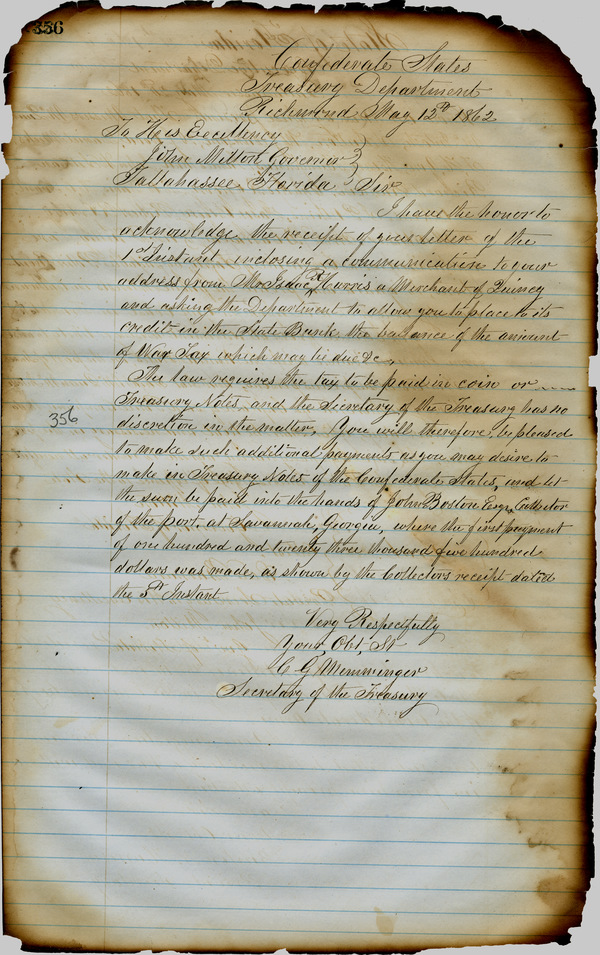 356
Confederate States
Treasury Department
Richmond May 12th 1862
To His Excellency
John Milton Governor
Tallahassee Florida Sir
I have the honor to
acknowledge the receipt of your letter of the
1st Instant inclosing a communication to your
address from Mr Isaac R Harris a Merchant of Quincy
and asking the Department to allow you to place to its
credit in the State Bank the balance of the amount
of War Tax which may be due &c,
The law requires the tax to be paid in coin or
Treasury Notes and the Secretary of the Treasury has no
356
discretion in the matter. You will therefore, be pleased
to make such additional payments as you may desire to
make in Treasury Notes of the Confederate States, and let
the sum be paid into the hands of John Boston Esqr, Collector
of the port, at Savannah, Georgia, where the first payment
of one hundred and twenty three thousand five hundred
dollars was made, as shown by the Collectors receipt dated
the 5th Instant
Very Respectfully
Your, Obt, St
C G Memminger
Secretary of the Treasury